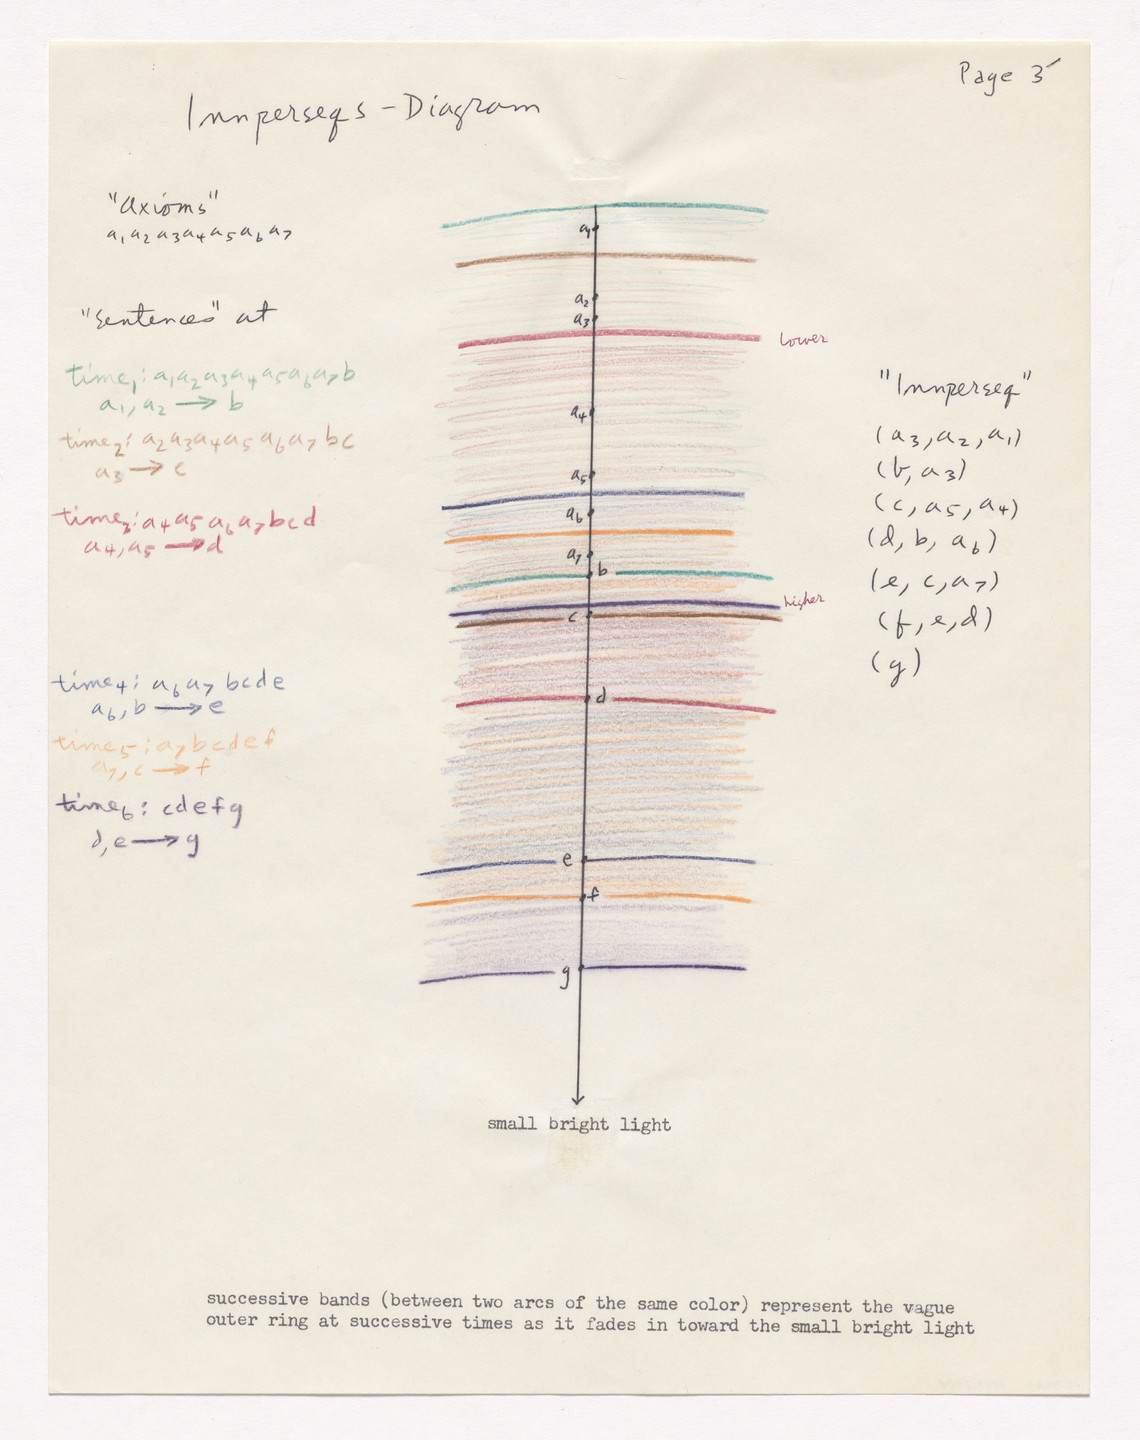 Page 3
Innperseqs - Diagram
"axioms"
a₁a₂a₃a₄a₅a₆a₇
"sentences" at
time₁: a₁a₂a₃a₄a₅a₆a₇b
a₁, a₂ → b
time₂: a₂a₃a₄a₅a₆a₇bc
a₃ → c
time₃: a₄a₅a₆a₇bcd
a₄, a₅ → d
time₄: a₆a₇bcde
a₆, b → e
time₅: a₇bcdef
a₇, c → f
time₆: cdefg
d, e → g
a₁
a₂
a₃
lower
a₄
a₅
a₆
a₇
b
higher
c
d
e
f
g
small bright light
"Innperseq"
(a₃, a₂, a₁)
(b, a₃)
(c, a₅, a₄)
(d, b, a₆)
(e, c, a₇)
(f, e, d)
(g)
successive bands (between two arcs of the same color) represent the vague
outer ring at successive times as it fades in toward the small bright light